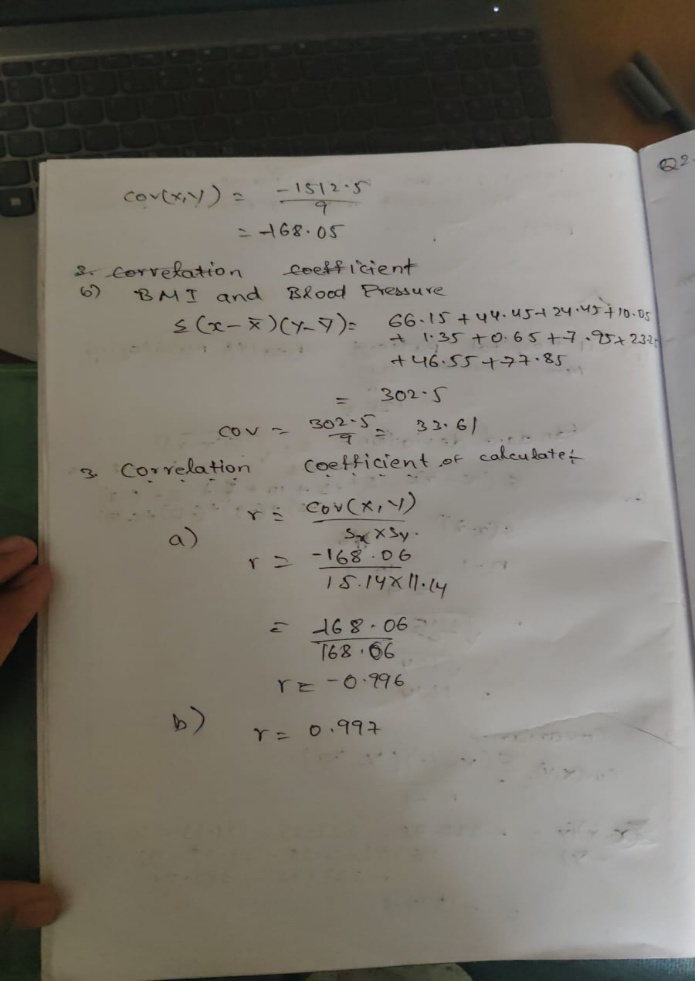 Q2.
cov(x,y) = -1512.5 / 9
= -168.05
2. Correlation coefficient
b) BMI and Blood Pressure
Σ(x-x̄)(y-ȳ)= 66.15+44.45+24.45+10.05
+ 1.35+0.65+7.95+23.2
+46.55+77.85
= 302.5
cov = 302.5 / 9 = 33.61
3. Correlation coefficient of calculate:-
r = cov(x,y) / Sx×Sy.
a)
r = -168.06 / 15.14×11.14
= -168.06 / 168.06
r = -0.996
b) r = 0.997